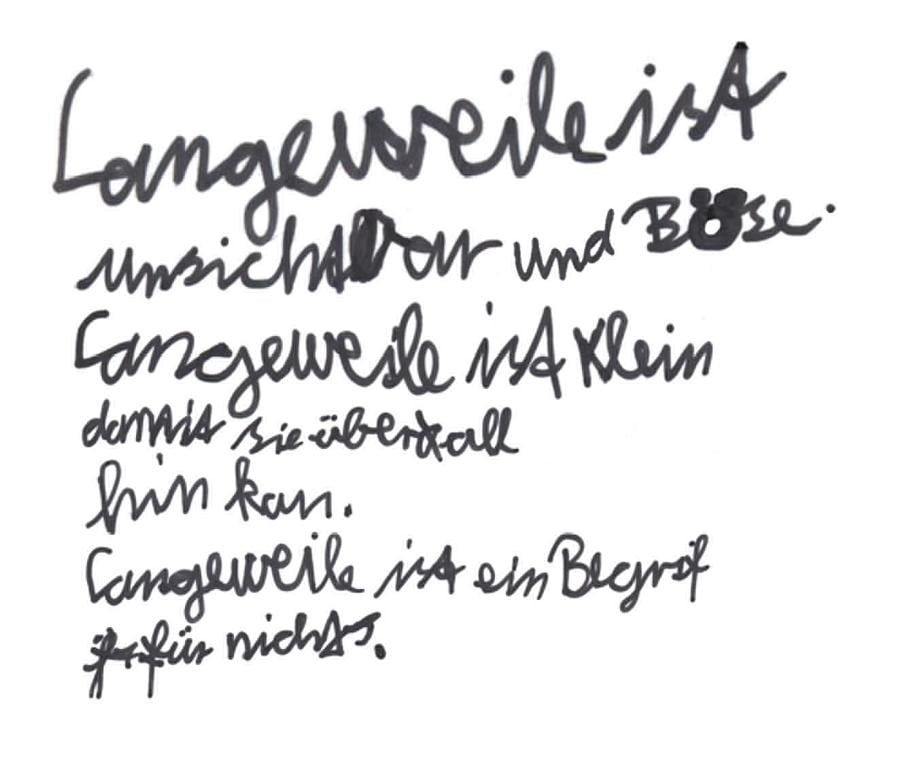 Langeweile ist
unsichtbar und Böse.
Langeweile ist Klein
damit sie überall
hin kan.
Langeweile ist ein Begrif
für nichts.